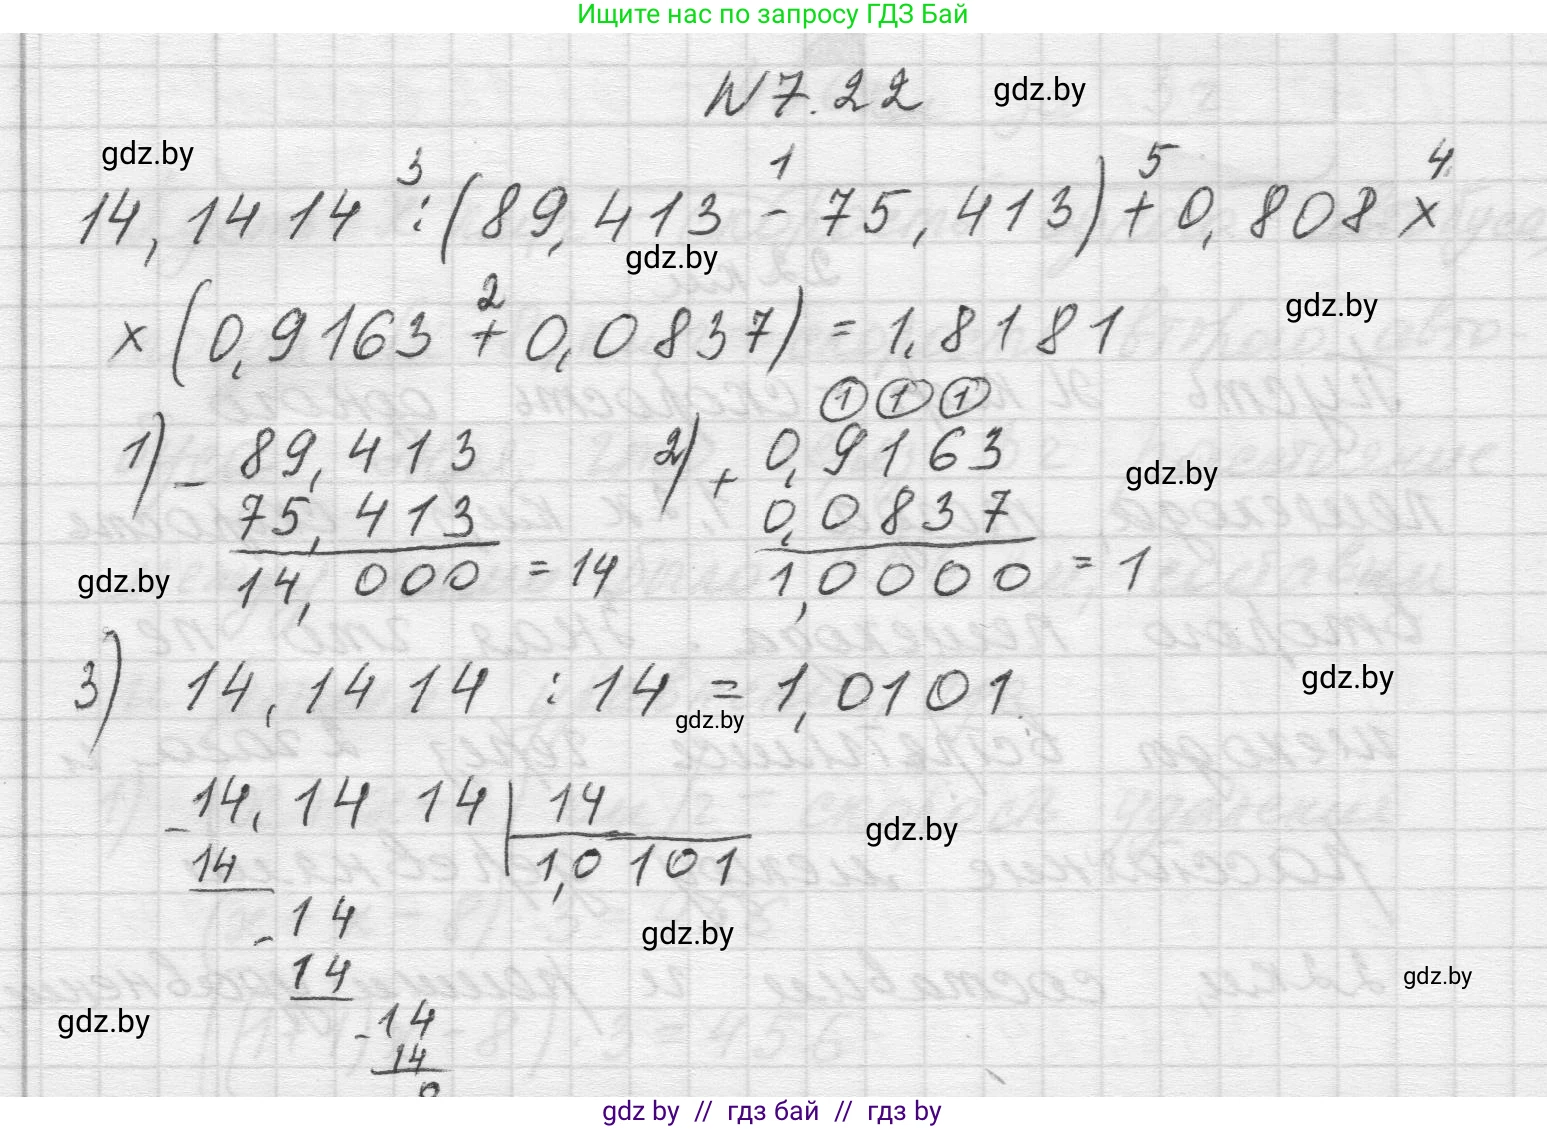 Ищите нас по запросу ГДЗ Бай
N 7.22 gdz.by
gdz.by 3 1 5 4
14,1414 : (89,413 - 75,413) + 0,808 ×
gdz.by
2 gdz.by
× (0,9163 + 0,0837) = 1,8181
1 1 1
1) - 89,413 2) + 0,9163 gdz.by
75,413 0,0837
gdz.by 14,000 = 14 1,0000 = 1
3) 14,1414 : 14 = 1,0101 gdz.by
gdz.by
- 14,1414 | 14 gdz.by
14 1,0101
- 14 gdz.by
14 gdz.by
gdz.by - 14
14
0
gdz by // гдз бай // гдз by